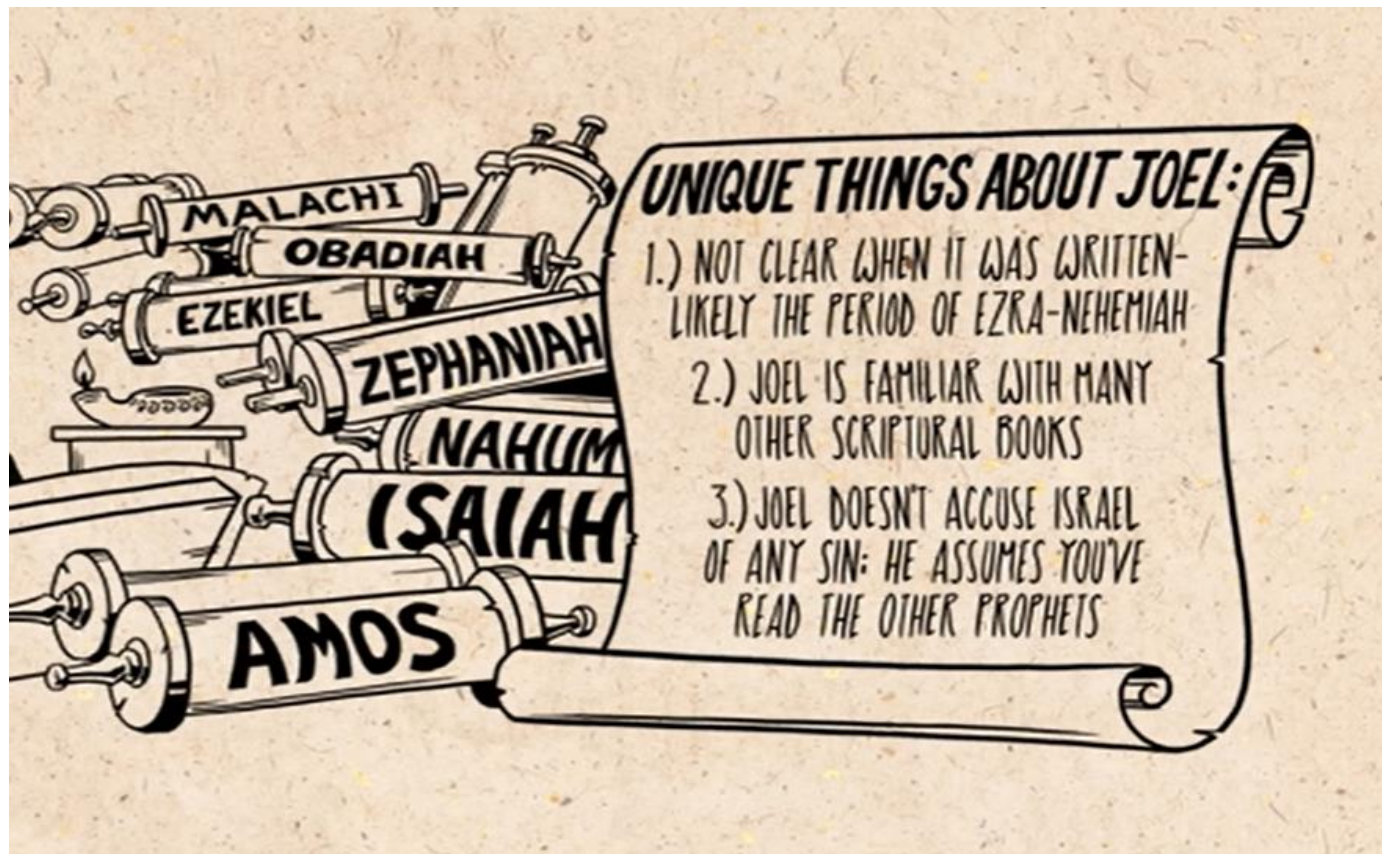 MALACHI
OBADIAH
EZEKIEL
ZEPHANIAH
NAHUM
ISAIAH
AMOS
UNIQUE THINGS ABOUT JOEL:
1.) NOT CLEAR WHEN IT WAS WRITTEN-
LIKELY THE PERIOD OF EZRA-NEHEMIAH
2.) JOEL IS FAMILIAR WITH MANY
OTHER SCRIPTURAL BOOKS
3.) JOEL DOESN'T ACCUSE ISRAEL
OF ANY SIN: HE ASSUMES YOU'VE
READ THE OTHER PROPHETS